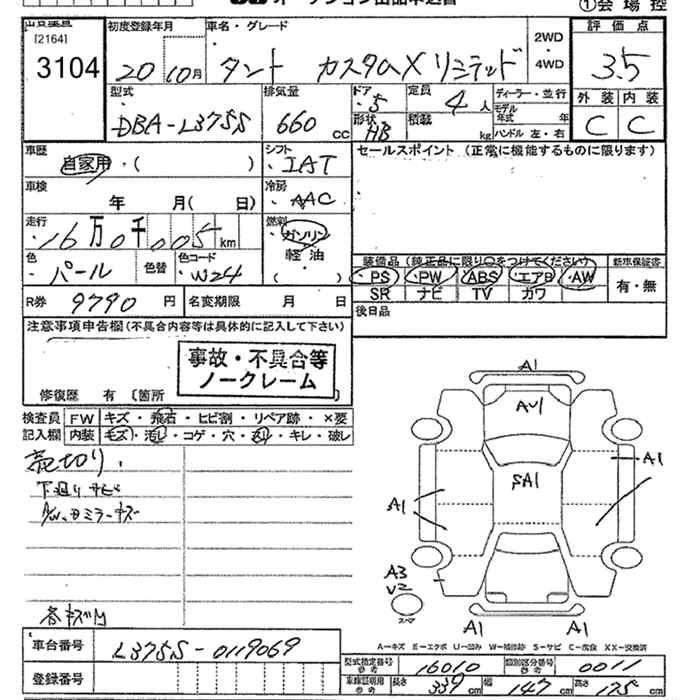 オークション出品申込書
①会場控
[2164]
3104
初度登録年月
20年10月
車名・グレード
タント カスタムXリミテッド
2WD
4WD
評価点
3.5
外装 内装
C C
型式
DBA-L375S
排気量
660 cc
ドア
5
形状
HB
定員
4人
積載
kg
ディーラー・並行
モデル年式 年
ハンドル 左・右
車歴
自家用・( )
シフト
IAT
セールスポイント (正常に機能するものに限ります)
車検
年 月( 日)
冷房
AAC
走行
16万0千005km
燃料
ガソリン
軽油
( )
色
パール
色替
色コード
W24
装備品(純正品に限り○をつけてください)
PS PW ABS エアB AW
SR ナビ TV カワ
新車保証書
有・無
R券 9790 円
名変期限 月 日
後日品
注意事項申告欄(不具合内容等は具体的に記入して下さい)
事故・不具合等
ノークレーム
修復歴 有 〔箇所
検査員
記入欄
FW キズ・飛石・ヒビ割・リペア跡・×要
内装 キズ・汚れ・コゲ・穴・スレ・キレ・破レ
売切り.
下廻りサビ
各キズ凹
A1
AU1
SA1
A1
A1
A3
V2
スペア
A1
A1
A-キズ E-エクボ U-凹み W-補修跡 S-サビ C-腐食 XX-交換済
車台番号 L375S-0119069
登録番号
型式指定番号 参考 16010
類別区分番号 参考 0011
車線証明用 参考 長さ 339cm 幅 147cm 高さ 175cm